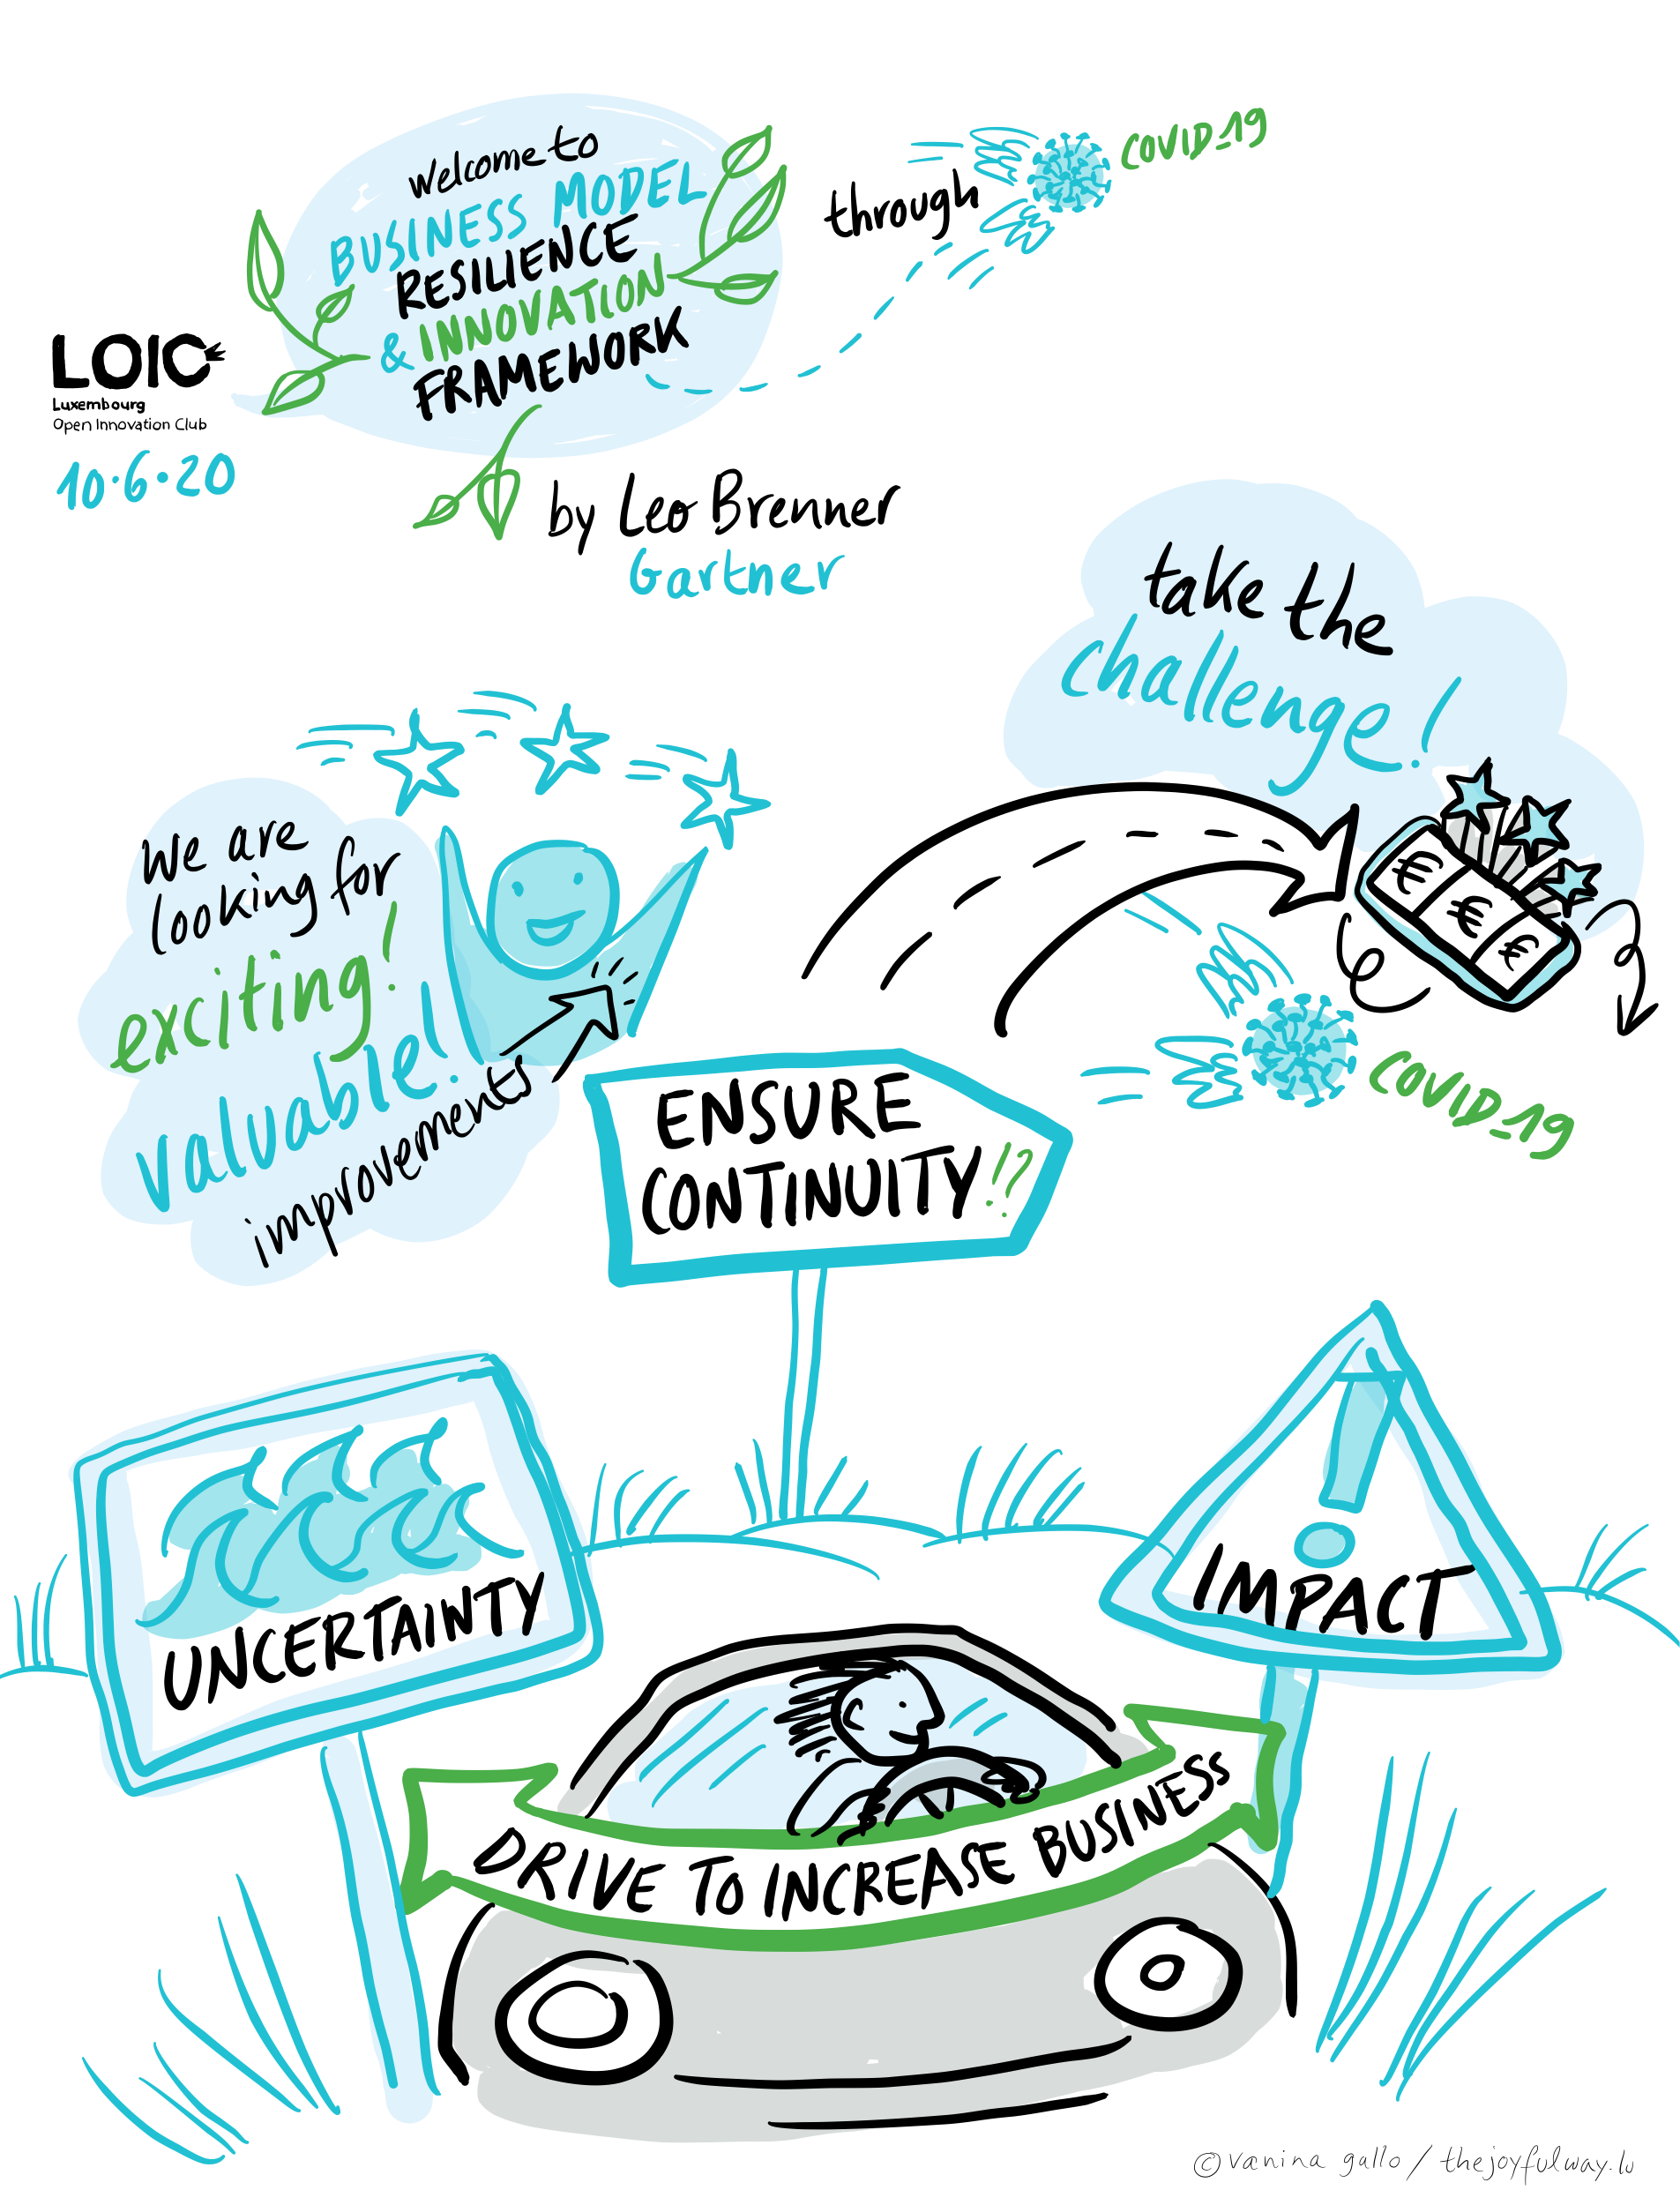 Welcome to
BUSINESS MODEL
RESILIENCE
& INNOVATION
FRAMEWORK
through
COVID_19
LOIC
Luxembourg
Open Innovation Club
10·6·20
by Leo Brenner
Gartner
take the
challenge!
We are
looking for
exciting!
valuable!
improvements
€
€
€
COVID_19
ENSURE
CONTINUITY!?
UNCERTAINTY
IMPACT
DRIVE TO INCREASE BUSINESS
©vanina gallo / thejoyfulway.lu